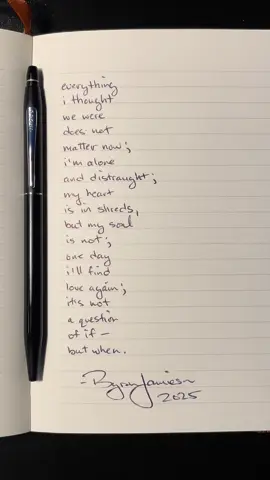 everything
i thought
we were
does not
matter now;
i'm alone
and distraught;
my heart
is in shreds,
but my soul
is not;
one day
i'll find
love again;
it's not
a question
of if —
but when.
2025